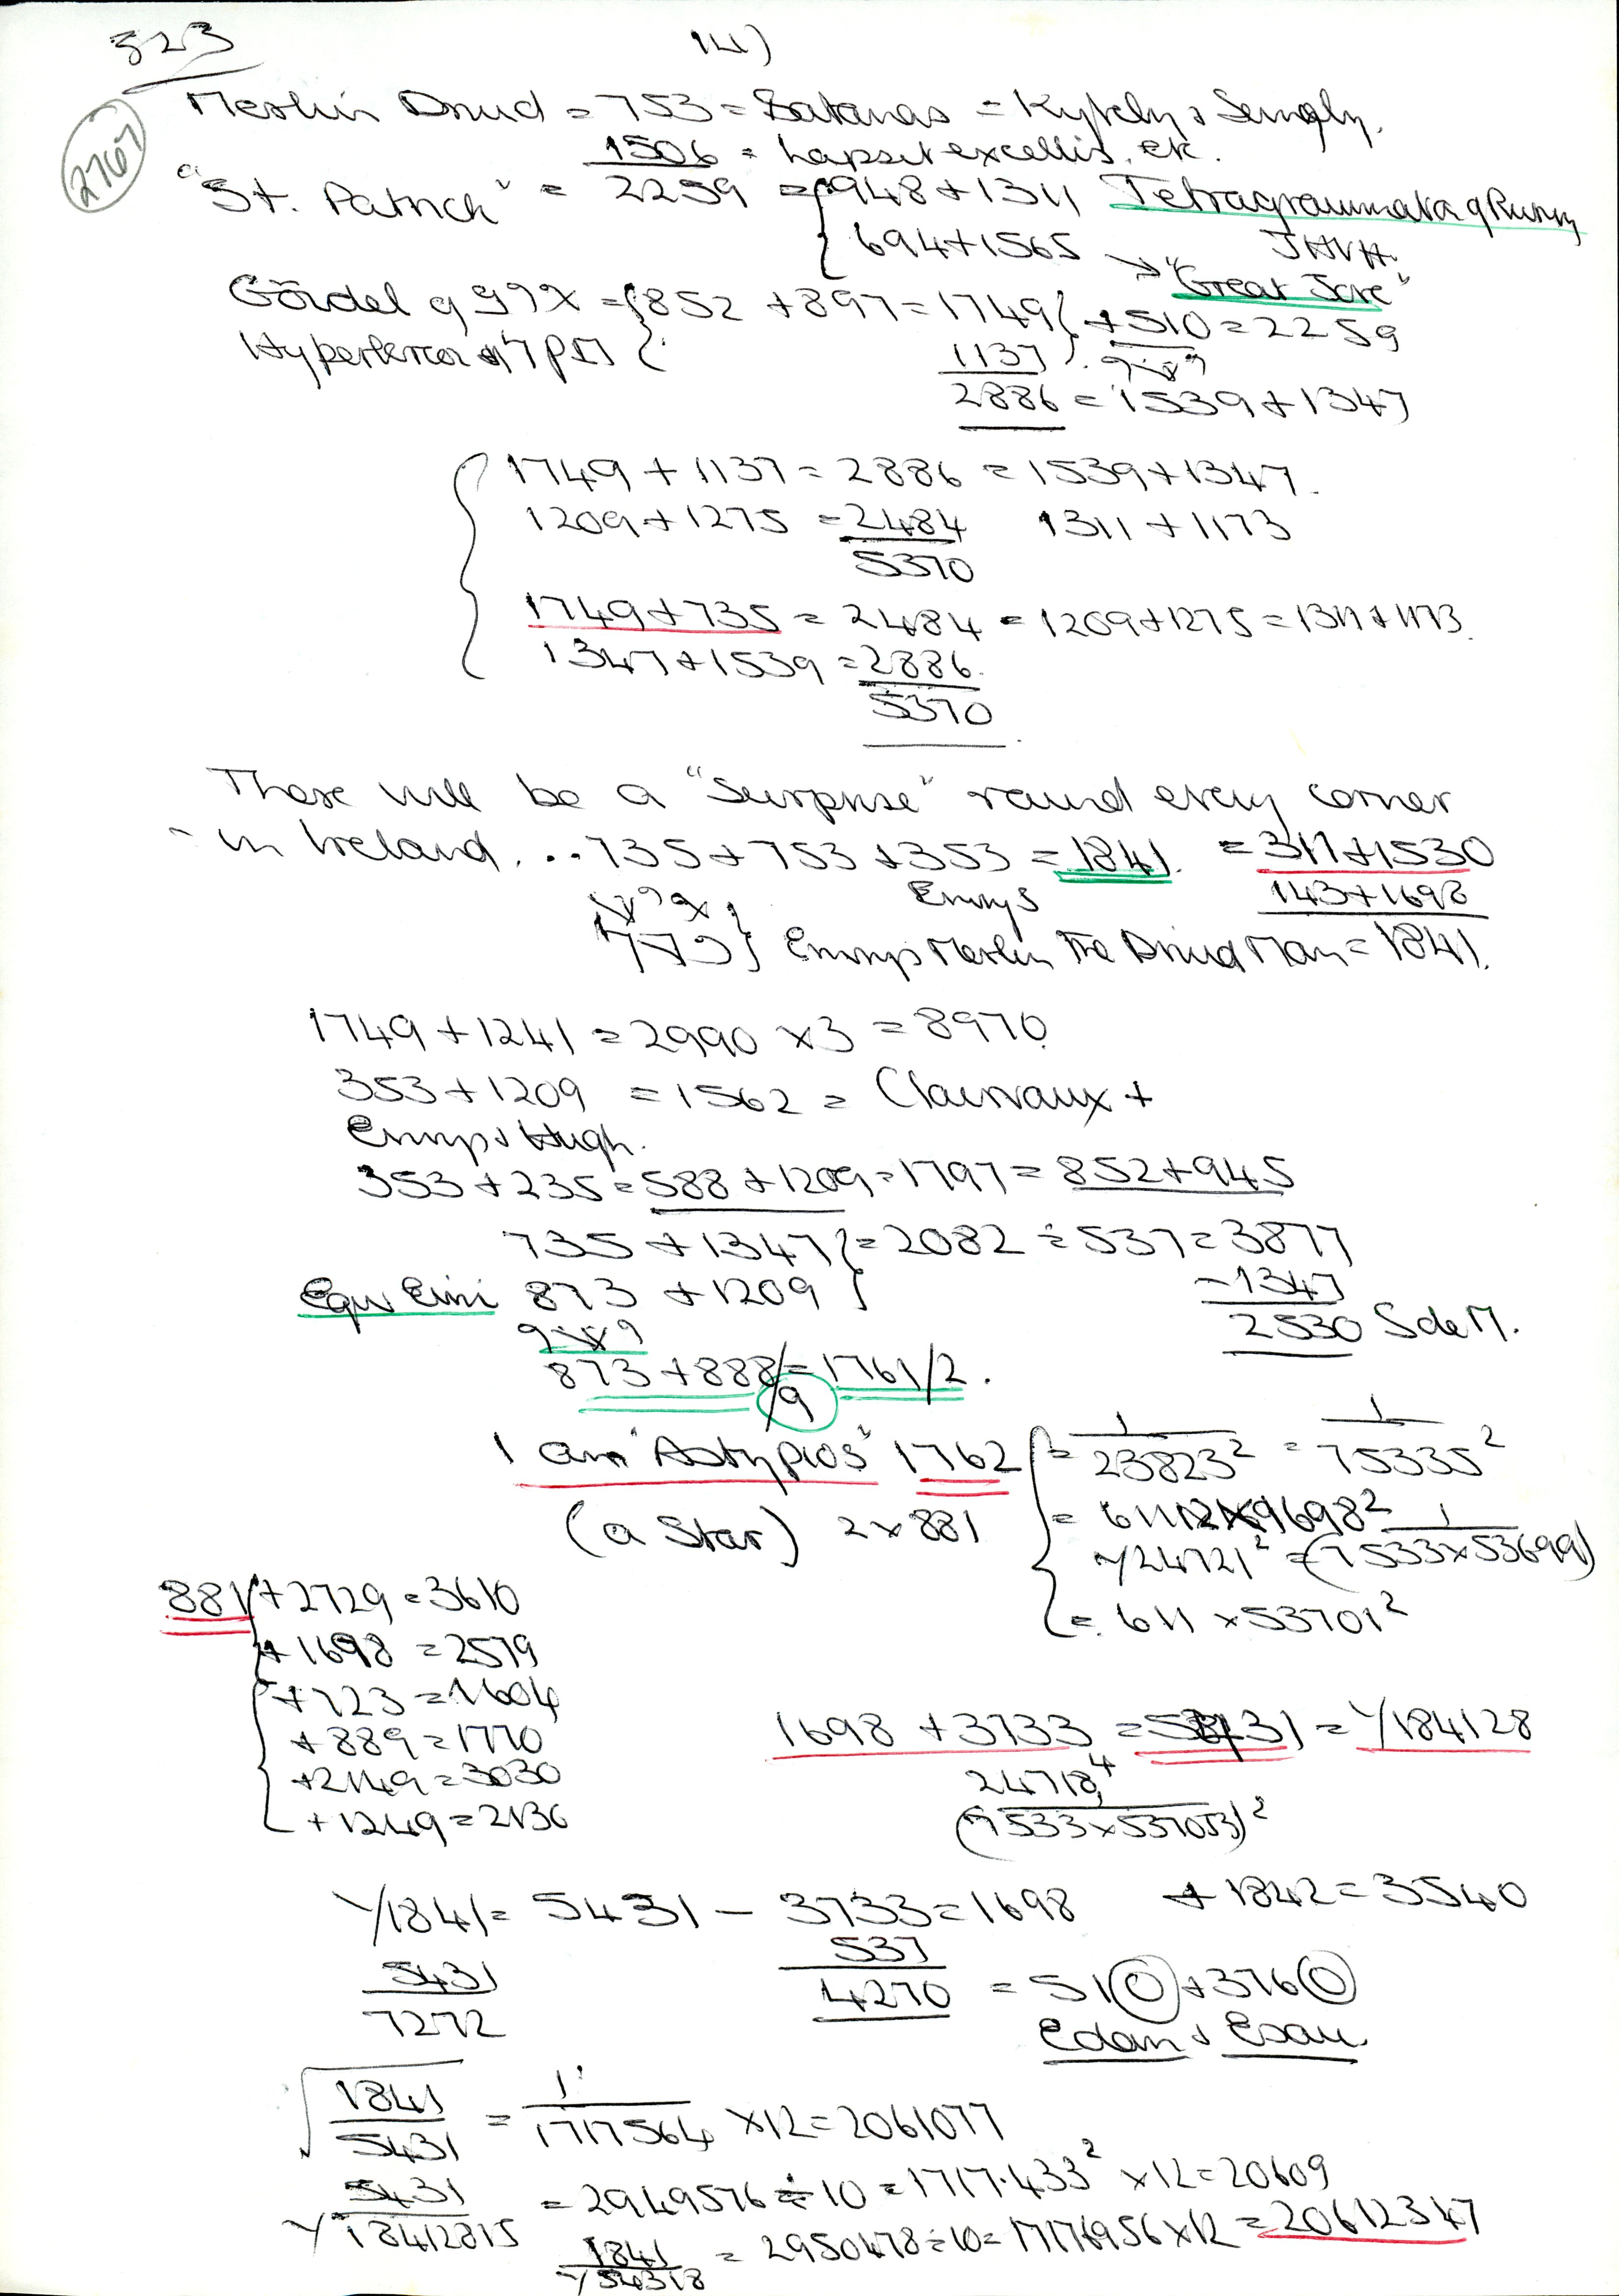 523
14)
2767
Merlin Druid = 753 = Satanas = Kyteler & Semgly.
1506 = Lapsit excellis. etc.
"St. Patrick" = 2259 = {948+1311 Tetragrammaton
694+1565 JHVH.
→ "Great Jove"
Gördel 9 99?X = {852 + 897 = 1749} + 510 = 2259
1137
2886 = 1539+1347
{1749 + 1137 = 2886 = 1539+1347.
1209+1275 = 2484 1311 + 1173
5370
1749+735 = 2484 = 1209+1275 = 1311+1173.
1347+1539 = 2886.
5370
There will be a "Surprise" round every corner
- in Ireland... 735+753+353 = 1841. = 311+1530
Emrys 143+1698
Emrys Merlin The Druid Man = 1841.
1749+1241 = 2990 x 3 = 8970
353+1209 = 1562 = Clairvaux +
Emrys & Hugh.
353+235 = 588+1209 = 1797 = 852+945
735 + 1347} = 2082 ÷ 537 = 3877
873 + 1209} - 1347
2530 S de M.
873+888/9 = 1761/2.
I am "Astypios" 1762 {= 1/23823² = 1/75335²
(a Star) 2x881 = 611 x 9698²
√24721² = 1/(7533x53699)
= 611 x 53701²
881 {+2729 = 3610
+1698 = 2579
+723 = 1604
+889 = 1770
+2149 = 3030
+1249 = 2136
1698 + 3733 = 5431 = √184128
24718⁴
(7533x537053)²
√1841 = 5431 - 3733 = 1698 + 1842 = 3540
5431 537
7272 4270 = 510 + 3760
Edan & Esau.
√1841/5431 = 1/1717564 x12 = 2061077
5431/√18412815 = 2949576 ÷ 10 = 1717.433² x12 = 20609
1841/√54318 = 2950478 ÷ 10 = 17176956 x 12 = 20612347